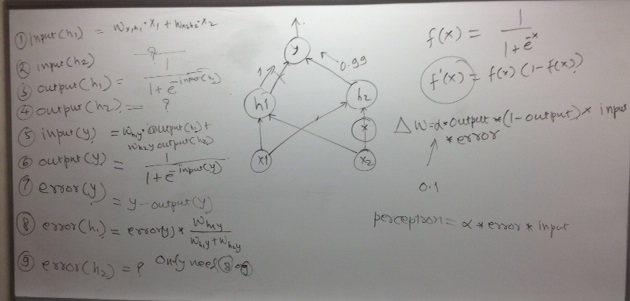 ① Input(h₁) = Wx₁h₁·x₁ + Wx₂h₁·x₂
② input(h₂) ?
③ output(h₁) = 1 / 1 + e^-input(h₁)
④ output(h₂) = ?
⑤ input(y) = Wh₁y·output(h₁) +
Wh₂y output(h₂)
⑥ output(y) = 1 / 1 + e^-input(y)
⑦ error(y) = y - output(y)
⑧ error(h₁) = error(y) * Wh₁y / Wh₁y + Wh₂y
⑨ error(h₂) = ? Only need ⑧
y
0.99
1
h1
h2
x
x1
x2
f(x) = 1 / 1 + e^-x
f'(x) = f(x) (1 - f(x))
ΔW = α * output * (1 - output) * input
* error
0.1
perceptron = α * error * input